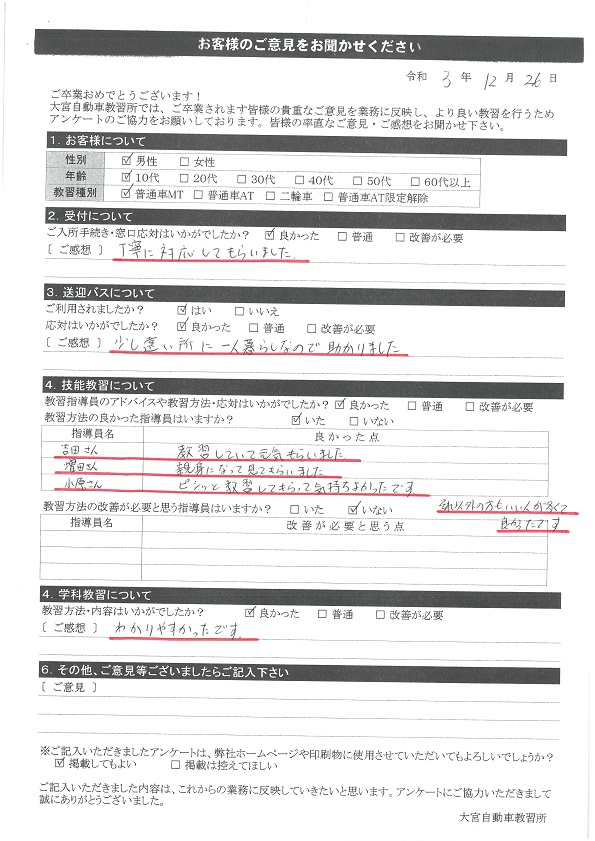 お客様のご意見をお聞かせください
令和 3 年 12 月 26 日
ご卒業おめでとうございます！
大宮自動車教習所では、ご卒業されます皆様の貴重なご意見を業務に反映し、より良い教習を行うため
アンケートのご協力をお願いしております。皆様の率直なご意見・ご感想をお聞かせ下さい。
1. お客様について
性別 ☑男性 □女性
年齢 ☑10代 □20代 □30代 □40代 □50代 □60代以上
教習種別 ☑普通車MT □普通車AT □二輪車 □普通車AT限定解除
2. 受付について
ご入所手続き・窓口応対はいかがでしたか？ ☑良かった □普通 □改善が必要
〔 ご感想 〕 丁寧に対応してもらいました。
3. 送迎バスについて
ご利用されましたか？ ☑はい □いいえ
応対はいかがでしたか？ ☑良かった □普通 □改善が必要
〔 ご感想 〕 少し遠い所に一人暮らしなので助かりました
4. 技能教習について
教習指導員のアドバイスや教習方法・応対はいかがでしたか？ ☑良かった □普通 □改善が必要
教習方法の良かった指導員はいますか？ ☑いた □いない
指導員名 良かった点
吉田さん 教習していて元気もらいました
濱田さん 親身になって見てもらいました
小原さん ビシッと教習してもらって気持ちよかったです
教習方法の改善が必要と思う指導員はいますか？ □いた ☑いない
それ以外の方もいい人が多くて
良かったです
指導員名 改善が必要と思う点
4. 学科教習について
教習方法・内容はいかがでしたか？ ☑良かった □普通 □改善が必要
〔 ご感想 〕 わかりやすかったです。
6. その他、ご意見等ございましたらご記入下さい
〔 ご意見 〕
※ご記入いただきましたアンケートは、弊社ホームページや印刷物に使用させていただいてもよろしいでしょうか？
☑掲載してもよい □掲載は控えてほしい
ご記入いただきました内容は、これからの業務に反映していきたいと思います。アンケートにご協力いただきまして
誠にありがとうございました。
大宮自動車教習所